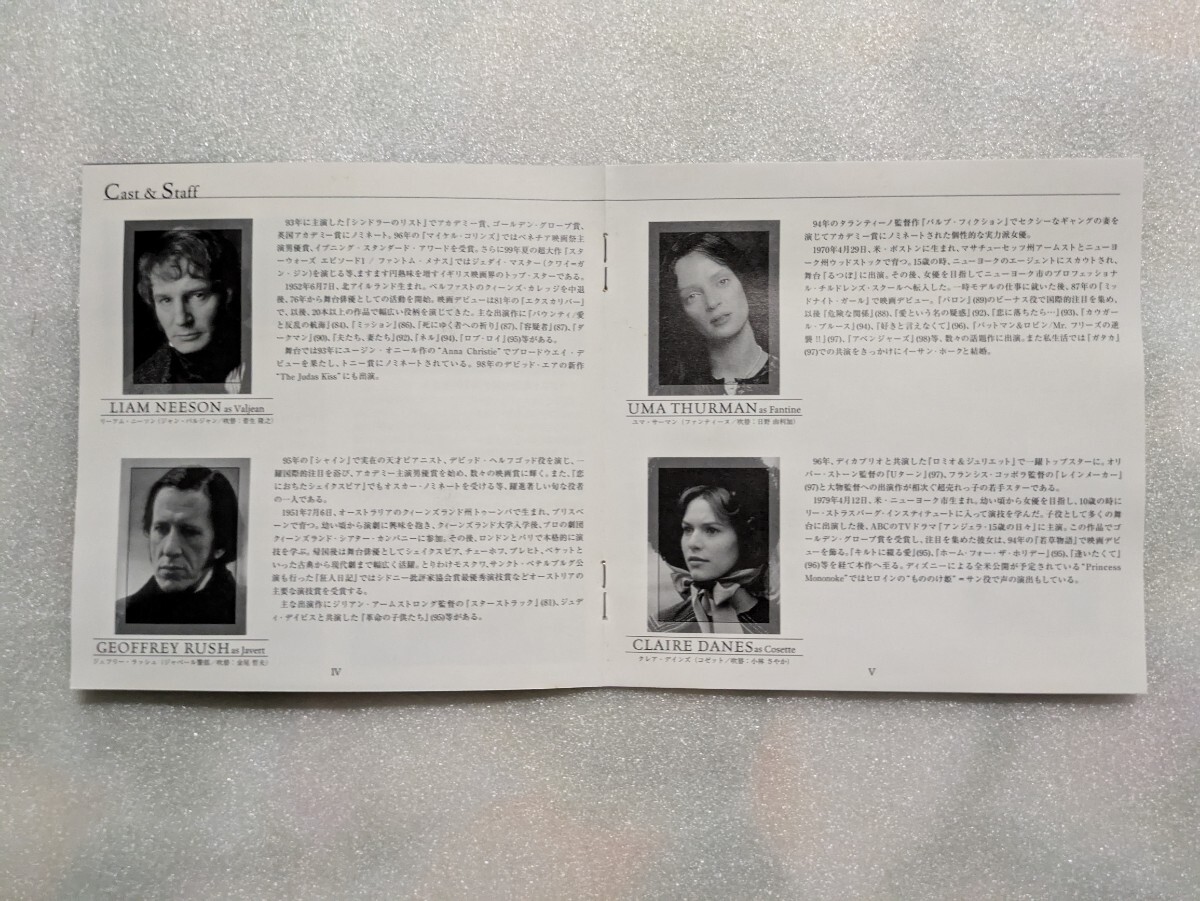 Cast & Staff
93年に主演した『シンドラーのリスト』でアカデミー賞、ゴールデン・グローブ賞、
英国アカデミー賞にノミネート。96年の『マイケル・コリンズ』ではベネチア映画祭主
演男優賞、イブニング・スタンダード・アワードを受賞。さらに99年夏の超大作『スタ
ーウォーズ エピソード1 / ファントム・メナス』ではジェダイ・マスター(クワイ=ガ
ン・ジン)を演じる等、ますます円熟味を増すイギリス映画界のトップ・スターである。
1952年6月7日、北アイルランド生まれ。ベルファストのクィーンズ・カレッジを中退
後、76年から舞台俳優としての活動を開始。映画デビューは81年の『エクスカリバー』
で、以後、20本以上の作品で幅広い役柄を演じてきた。主な出演作に『バウンティ/愛
と反乱の航海』(84)、『ミッション』(86)、『死にゆく者への祈り』(87)、『容疑者』(87)、『ダ
ークマン』(90)、『夫たち、妻たち』(92)、『ネル』(94)、『ロブ・ロイ』(95)等がある。
舞台では93年にユージン・オニール作の"Anna Christie"でブロードウエイ・デ
ビューを果たし、トニー賞にノミネートされている。98年のデビッド・エアの新作
"The Judas Kiss"にも出演。
LIAM NEESON as Valjean
リーアム・ニーソン (ジャン・バルジャン/吹替：菅生 隆之)
95年の『シャイン』で実在の天才ピアニスト、デビッド・ヘルフゴッド役を演じ、一
躍国際的注目を浴び、アカデミー主演男優賞を始め、数々の映画賞に輝く。また、『恋
におちたシェイクスピア』でもオスカー・ノミネートを受ける等、躍進著しい旬な役者
の一人である。
1951年7月6日、オーストラリアのクィーンズランド州トゥーンバで生まれ、ブリスベ
ーンで育つ。幼い頃から演劇に興味を抱き、クィーンズランド大学入学後、プロの劇団
クィーンズランド・シアター・カンパニーに参加。その後、ロンドンとパリで本格的に演
技を学ぶ。帰国後は舞台俳優としてシェイクスピア、チェーホフ、ブレヒト、ベケットと
いった古典から現代劇まで幅広く活躍。とりわけモスクワ、サンクト・ペテルブルグ公
演も行った『狂人日記』ではシドニー批評家協会賞最優秀演技賞などオーストリアの
主要な演技賞を受賞する。
主な出演作にジリアン・アームストロング監督の『スターストラック』(81)、ジュデ
ィ・デイビスと共演した『革命の子供たち』(95)等がある。
GEOFFREY RUSH as Javert
ジェフリー・ラッシュ (ジャベール警部/吹替：金尾 哲夫)
IV
94年のタランティーノ監督作『パルプ・フィクション』でセクシーなギャングの妻を
演じてアカデミー賞にノミネートされた個性的な実力派女優。
1970年4月29日、米・ボストンに生まれ、マサチューセッツ州アームストとニューヨ
ーク州ウッドストックで育つ。15歳の時、ニューヨークのエージェントにスカウトされ、
舞台『るつぼ』に出演。その後、女優を目指してニューヨーク市のプロフェッショナ
ル・チルドレンズ・スクールへ転入した。一時モデルの仕事に就いた後、87年の『ミッ
ドナイト・ガール』で映画デビュー。『バロン』(89)のビーナス役で国際的注目を集め、
以後『危険な関係』(88)、『愛という名の疑惑』(92)、『恋に落ちたら…』(93)、『カウガー
ル・ブルース』(94)、『好きと言えなくて』(96)、『バットマン&ロビン/Mr. フリーズの逆
襲!!』(97)、『アベンジャーズ』(98)等、数々の話題作に出演。また私生活では『ガタカ』
(97)での共演をきっかけにイーサン・ホークと結婚。
UMA THURMAN as Fantine
ユマ・サーマン (ファンティーヌ/吹替：日野 由利加)
96年、ディカプリオと共演した『ロミオ&ジュリエット』で一躍トップスターに。オリ
バー・ストーン監督の『Uターン』(97)、フランシス・コッポラ監督の『レインメーカー』
(97)と大物監督への出演作が相次ぐ超売れっ子の若手スターである。
1979年4月12日、米・ニューヨーク市生まれ。幼い頃から女優を目指し、10歳の時に
リー・ストラスバーグ・インスティチュートに入って演技を学んだ。子役として多くの舞
台に出演した後、ABCのTVドラマ『アンジェラ・15歳の日々』に主演。この作品でゴ
ールデン・グローブ賞を受賞し、注目を集めた彼女は、94年の『若草物語』で映画デビ
ューを飾る。『キルトに綴る愛』(95)、『ホーム・フォー・ザ・ホリデー』(95)、『逢いたくて』
(96)等を経て本作へ至る。ディズニーによる全米公開が予定されている"Princess
Mononoke"ではヒロインの"もののけ姫"=サン役で声の演出もしている。
CLAIRE DANES as Cosette
クレア・デインズ (コゼット/吹替：小林 さやか)
V